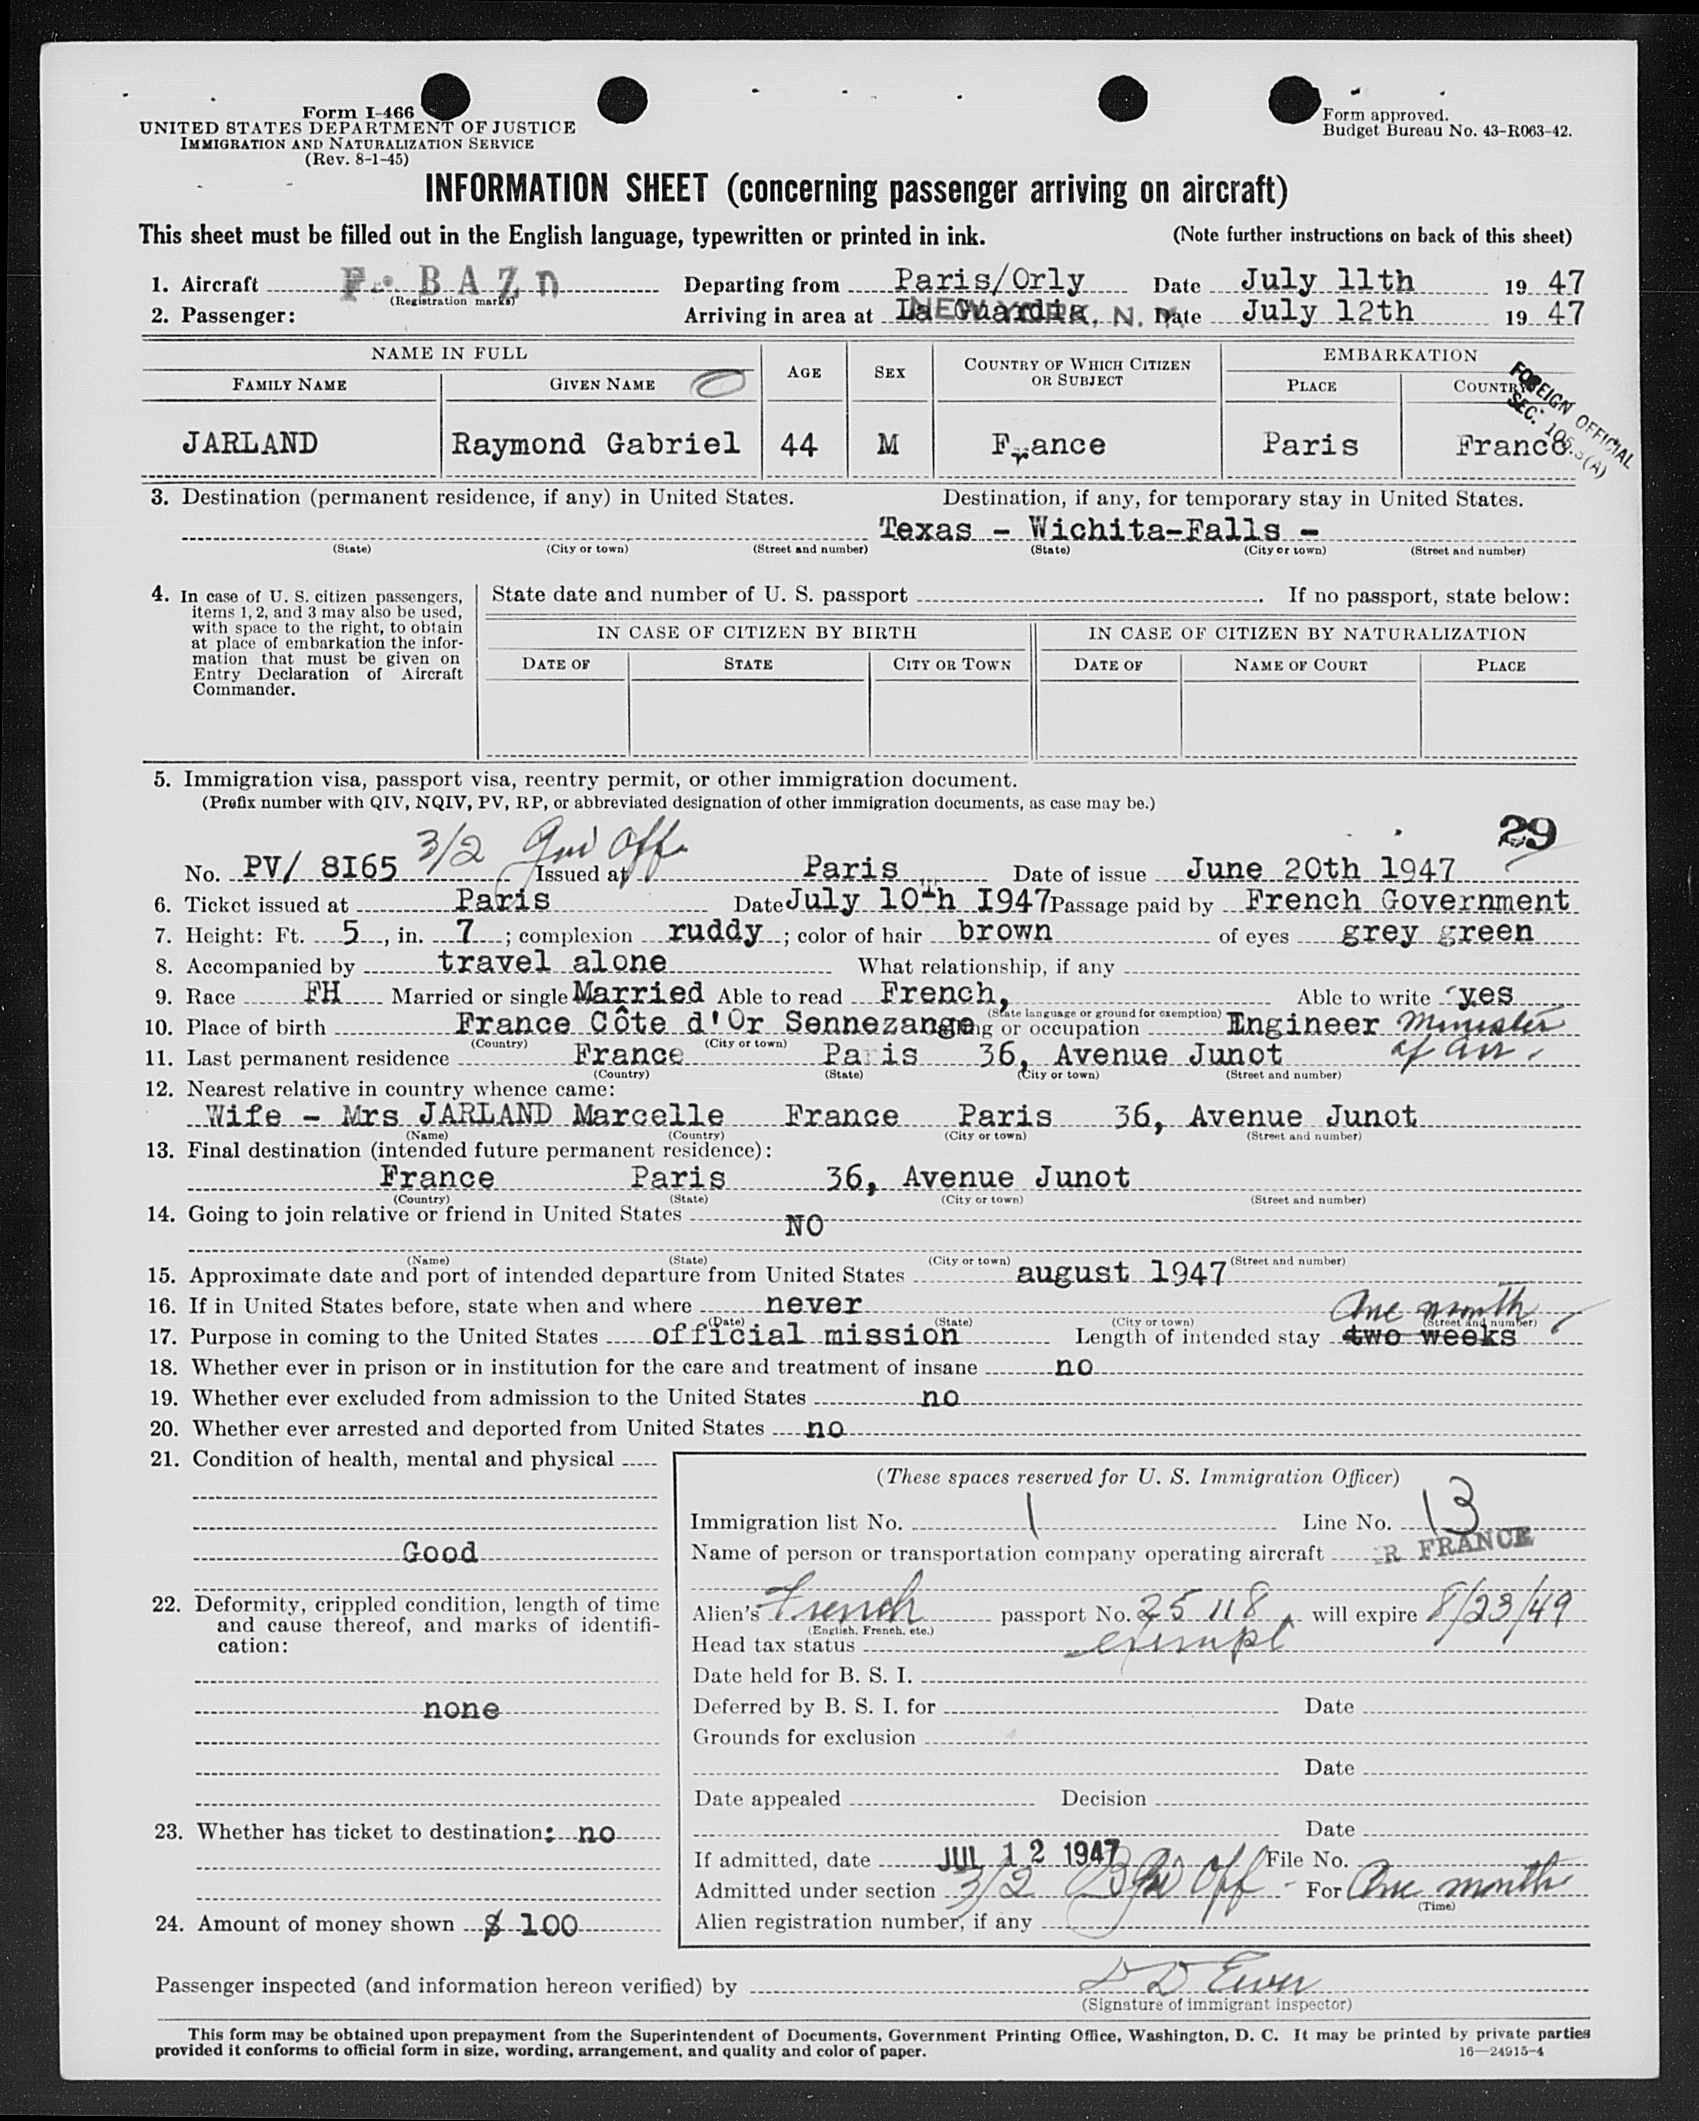 Form I-466
UNITED STATES DEPARTMENT OF JUSTICE
IMMIGRATION AND NATURALIZATION SERVICE
(Rev. 8-1-45)
Form approved.
Budget Bureau No. 43-R063-42.
INFORMATION SHEET (concerning passenger arriving on aircraft)
This sheet must be filled out in the English language, typewritten or printed in ink. (Note further instructions on back of this sheet)
1. Aircraft F. BAZD Departing from Paris/Orly Date July 11th 19 47
(Registration marks)
2. Passenger: Arriving in area at La Guardia NEW YORK, N. Y. Date July 12th 19 47
NAME IN FULL AGE SEX COUNTRY OF WHICH CITIZEN OR SUBJECT EMBARKATION
FAMILY NAME GIVEN NAME PLACE COUNTRY
FOREIGN OFFICIAL
SEC. 105.3(A)
JARLAND Raymond Gabriel 44 M France Paris France
3. Destination (permanent residence, if any) in United States. Destination, if any, for temporary stay in United States.
Texas - Wichita-Falls -
(State) (City or town) (Street and number) (State) (City or town) (Street and number)
4. In case of U. S. citizen passengers, items 1, 2, and 3 may also be used, with space to the right, to obtain at place of embarkation the information that must be given on Entry Declaration of Aircraft Commander.
State date and number of U. S. passport . If no passport, state below:
IN CASE OF CITIZEN BY BIRTH IN CASE OF CITIZEN BY NATURALIZATION
DATE OF STATE CITY OR TOWN DATE OF NAME OF COURT PLACE
5. Immigration visa, passport visa, reentry permit, or other immigration document.
(Prefix number with QIV, NQIV, PV, RP, or abbreviated designation of other immigration documents, as case may be.)
29
No. PV/ 8165 3/2 Off. Issued at Paris Date of issue June 20th 1947
6. Ticket issued at Paris Date July 10th 1947 Passage paid by French Government
7. Height: Ft. 5, in. 7; complexion ruddy; color of hair brown of eyes grey green
8. Accompanied by travel alone What relationship, if any
9. Race FH Married or single Married Able to read French, Able to write yes
(State language or ground for exemption)
10. Place of birth France Côte d'Or Sennezange or occupation Engineer Minister of air
(Country) (City or town)
11. Last permanent residence France Paris 36, Avenue Junot
(Country) (State) (City or town) (Street and number)
12. Nearest relative in country whence came:
Wife - Mrs JARLAND Marcelle France Paris 36, Avenue Junot
(Name) (Country) (City or town) (Street and number)
13. Final destination (intended future permanent residence):
France Paris 36, Avenue Junot
(Country) (State) (City or town) (Street and number)
14. Going to join relative or friend in United States NO
(Name) (State) (City or town) (Street and number)
15. Approximate date and port of intended departure from United States august 1947
16. If in United States before, state when and where never
(Date) (State) (City or town) (Street and number)
One month
17. Purpose in coming to the United States official mission Length of intended stay two weeks
18. Whether ever in prison or in institution for the care and treatment of insane no
19. Whether ever excluded from admission to the United States no
20. Whether ever arrested and deported from United States no
21. Condition of health, mental and physical
Good
22. Deformity, crippled condition, length of time and cause thereof, and marks of identification:
none
23. Whether has ticket to destination: no
24. Amount of money shown $ 100
(These spaces reserved for U. S. Immigration Officer)
Immigration list No. 1 Line No. 13
Name of person or transportation company operating aircraft R FRANCE
Alien's French passport No. 25118, will expire 8/23/49
(English, French, etc.)
Head tax status exempt
Date held for B. S. I.
Deferred by B. S. I. for Date
Grounds for exclusion
Date
Date appealed Decision
Date
If admitted, date JUL 12 1947 File No.
Admitted under section 3/2 Off For One month
(Time)
Alien registration number, if any
Passenger inspected (and information hereon verified) by D D Ewer
(Signature of immigrant inspector)
This form may be obtained upon prepayment from the Superintendent of Documents, Government Printing Office, Washington, D. C. It may be printed by private parties
provided it conforms to official form in size, wording, arrangement, and quality and color of paper. 16—24915-4